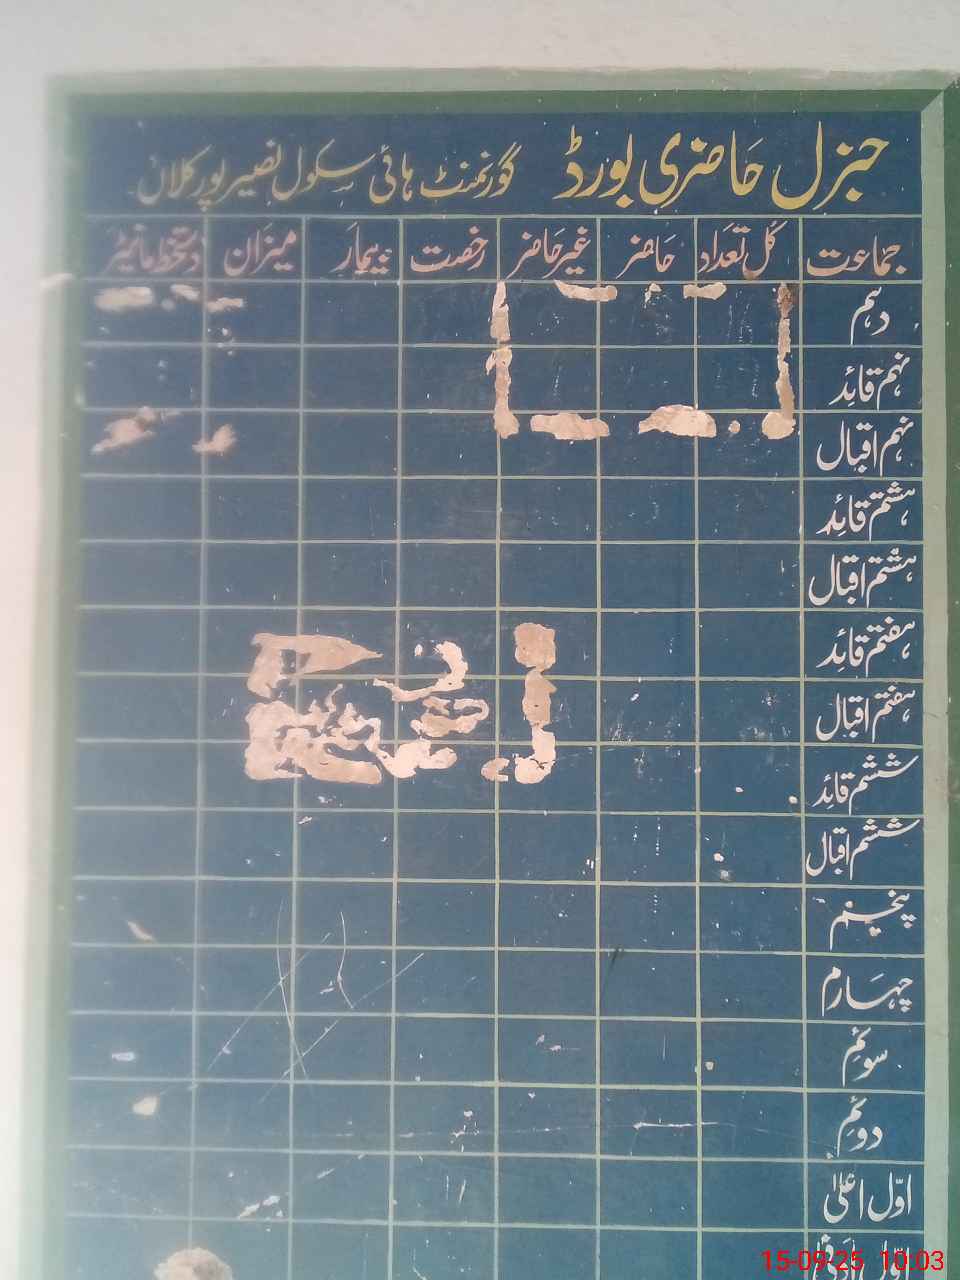 جنرل حاضری بورڈ گورنمنٹ ہائی سکول نصیر پور کلاں
جماعت کل تعداد حاضر غیر حاضر رخصت بیمار میزان دستخط مانیٹر
دہم
نہم قائد
نہم اقبال
ہشتم قائد
ہشتم اقبال
ہفتم قائد
ہفتم اقبال
ششم قائد
ششم اقبال
پنجم
چہارم
سوئم
دوئم
اوّل اعلیٰ
15-09-25 10:03